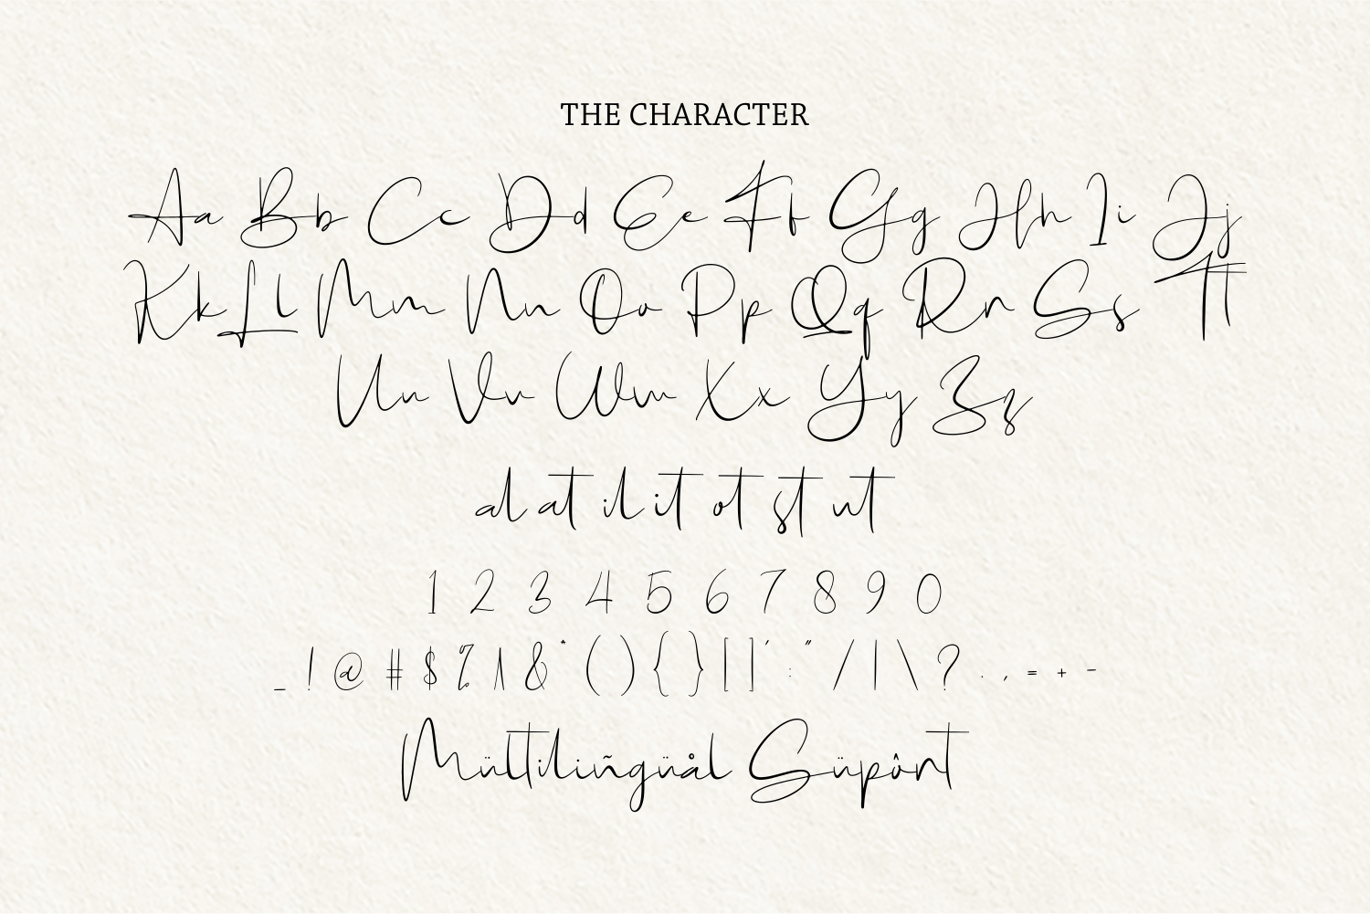 THE CHARACTER
Aa Bb Cc Dd Ee Ff Gg Hh Ii Jj
Kk Ll Mm Nn Oo Pp Qq Rr Ss Tt
Uu Vv Ww Xx Yy Zz
al at il it ot st ut
1 2 3 4 5 6 7 8 9 0
_ ! @ # $ % ^ & * ( ) { } [ ] ' : " / | \ ? . , = + -
Mültiliñgüål Süpôrt